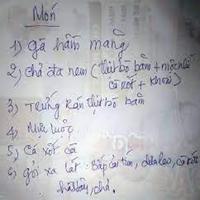 Món
1) gà hầm măng
2) chả đa nem (thịt bò băm + mộc nhĩ
cà rốt + khoai)
3) Trứng rán thịt bò băm
4) Mực luộc
5) Cá xốt cà
6) gỏi xa lát: bắp cải tím, dưa leo, cà rốt